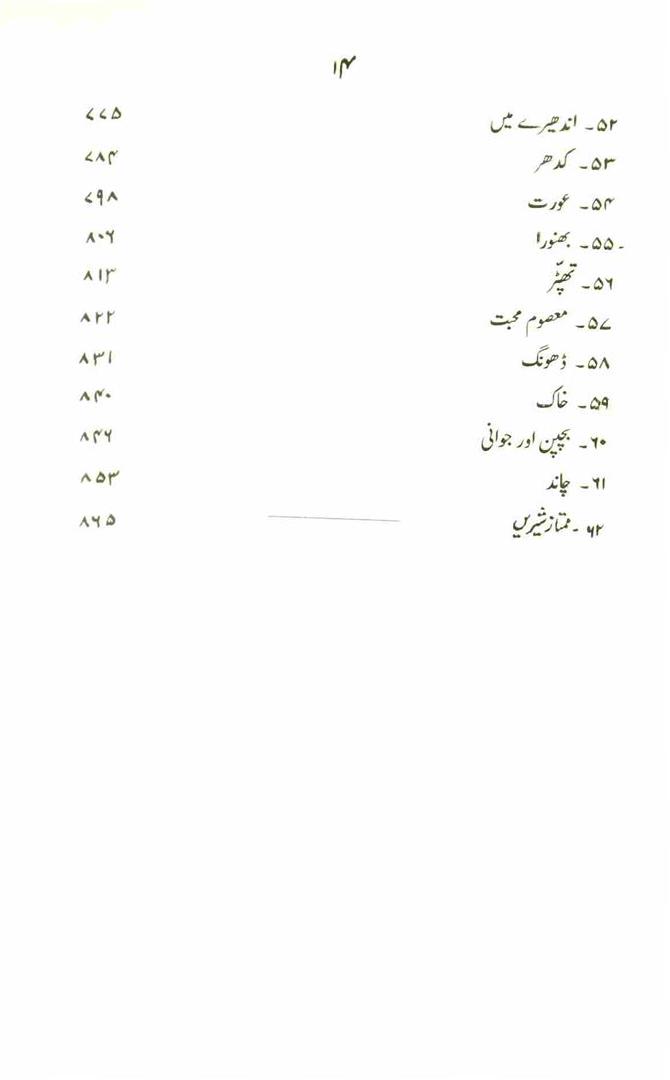 ۱۴
۵۲۔ اندھیرے میں ۷۷۵
۵۳۔ کدھر ۷۸۴
۵۴۔ عورت ۷۹۸
۵۵۔ بھنورا ۸۰۶
۵۶۔ تھپّڑ ۸۱۳
۵۷۔ معصوم محبت ۸۲۲
۵۸۔ ڈھونگ ۸۳۱
۵۹۔ خاک ۸۴۰
۶۰۔ بچپن اور جوانی ۸۴۶
۶۱۔ چاند ۸۵۳
۶۲۔ ممتاز شیریں ۸۶۵